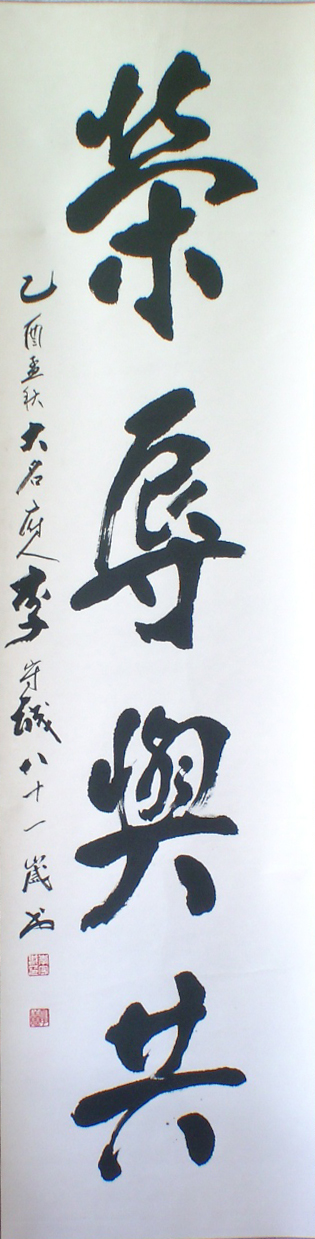 榮辱與共
乙酉孟秋大名府人李守誠八十一歲書